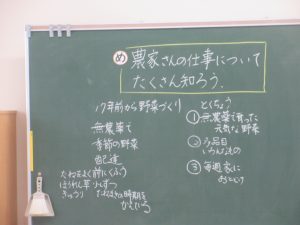 め 農家さんの仕事について
たくさん知ろう。
17年前から野菜づくり
無農薬で
季節の野菜
ほうれん草 少しずつ
きゅうり たねまきの時期を
かえている
とくちょう
① 無農薬で育った
元気な野菜
② 多品目
いろんなもの
③ 毎週家に
おとどけ